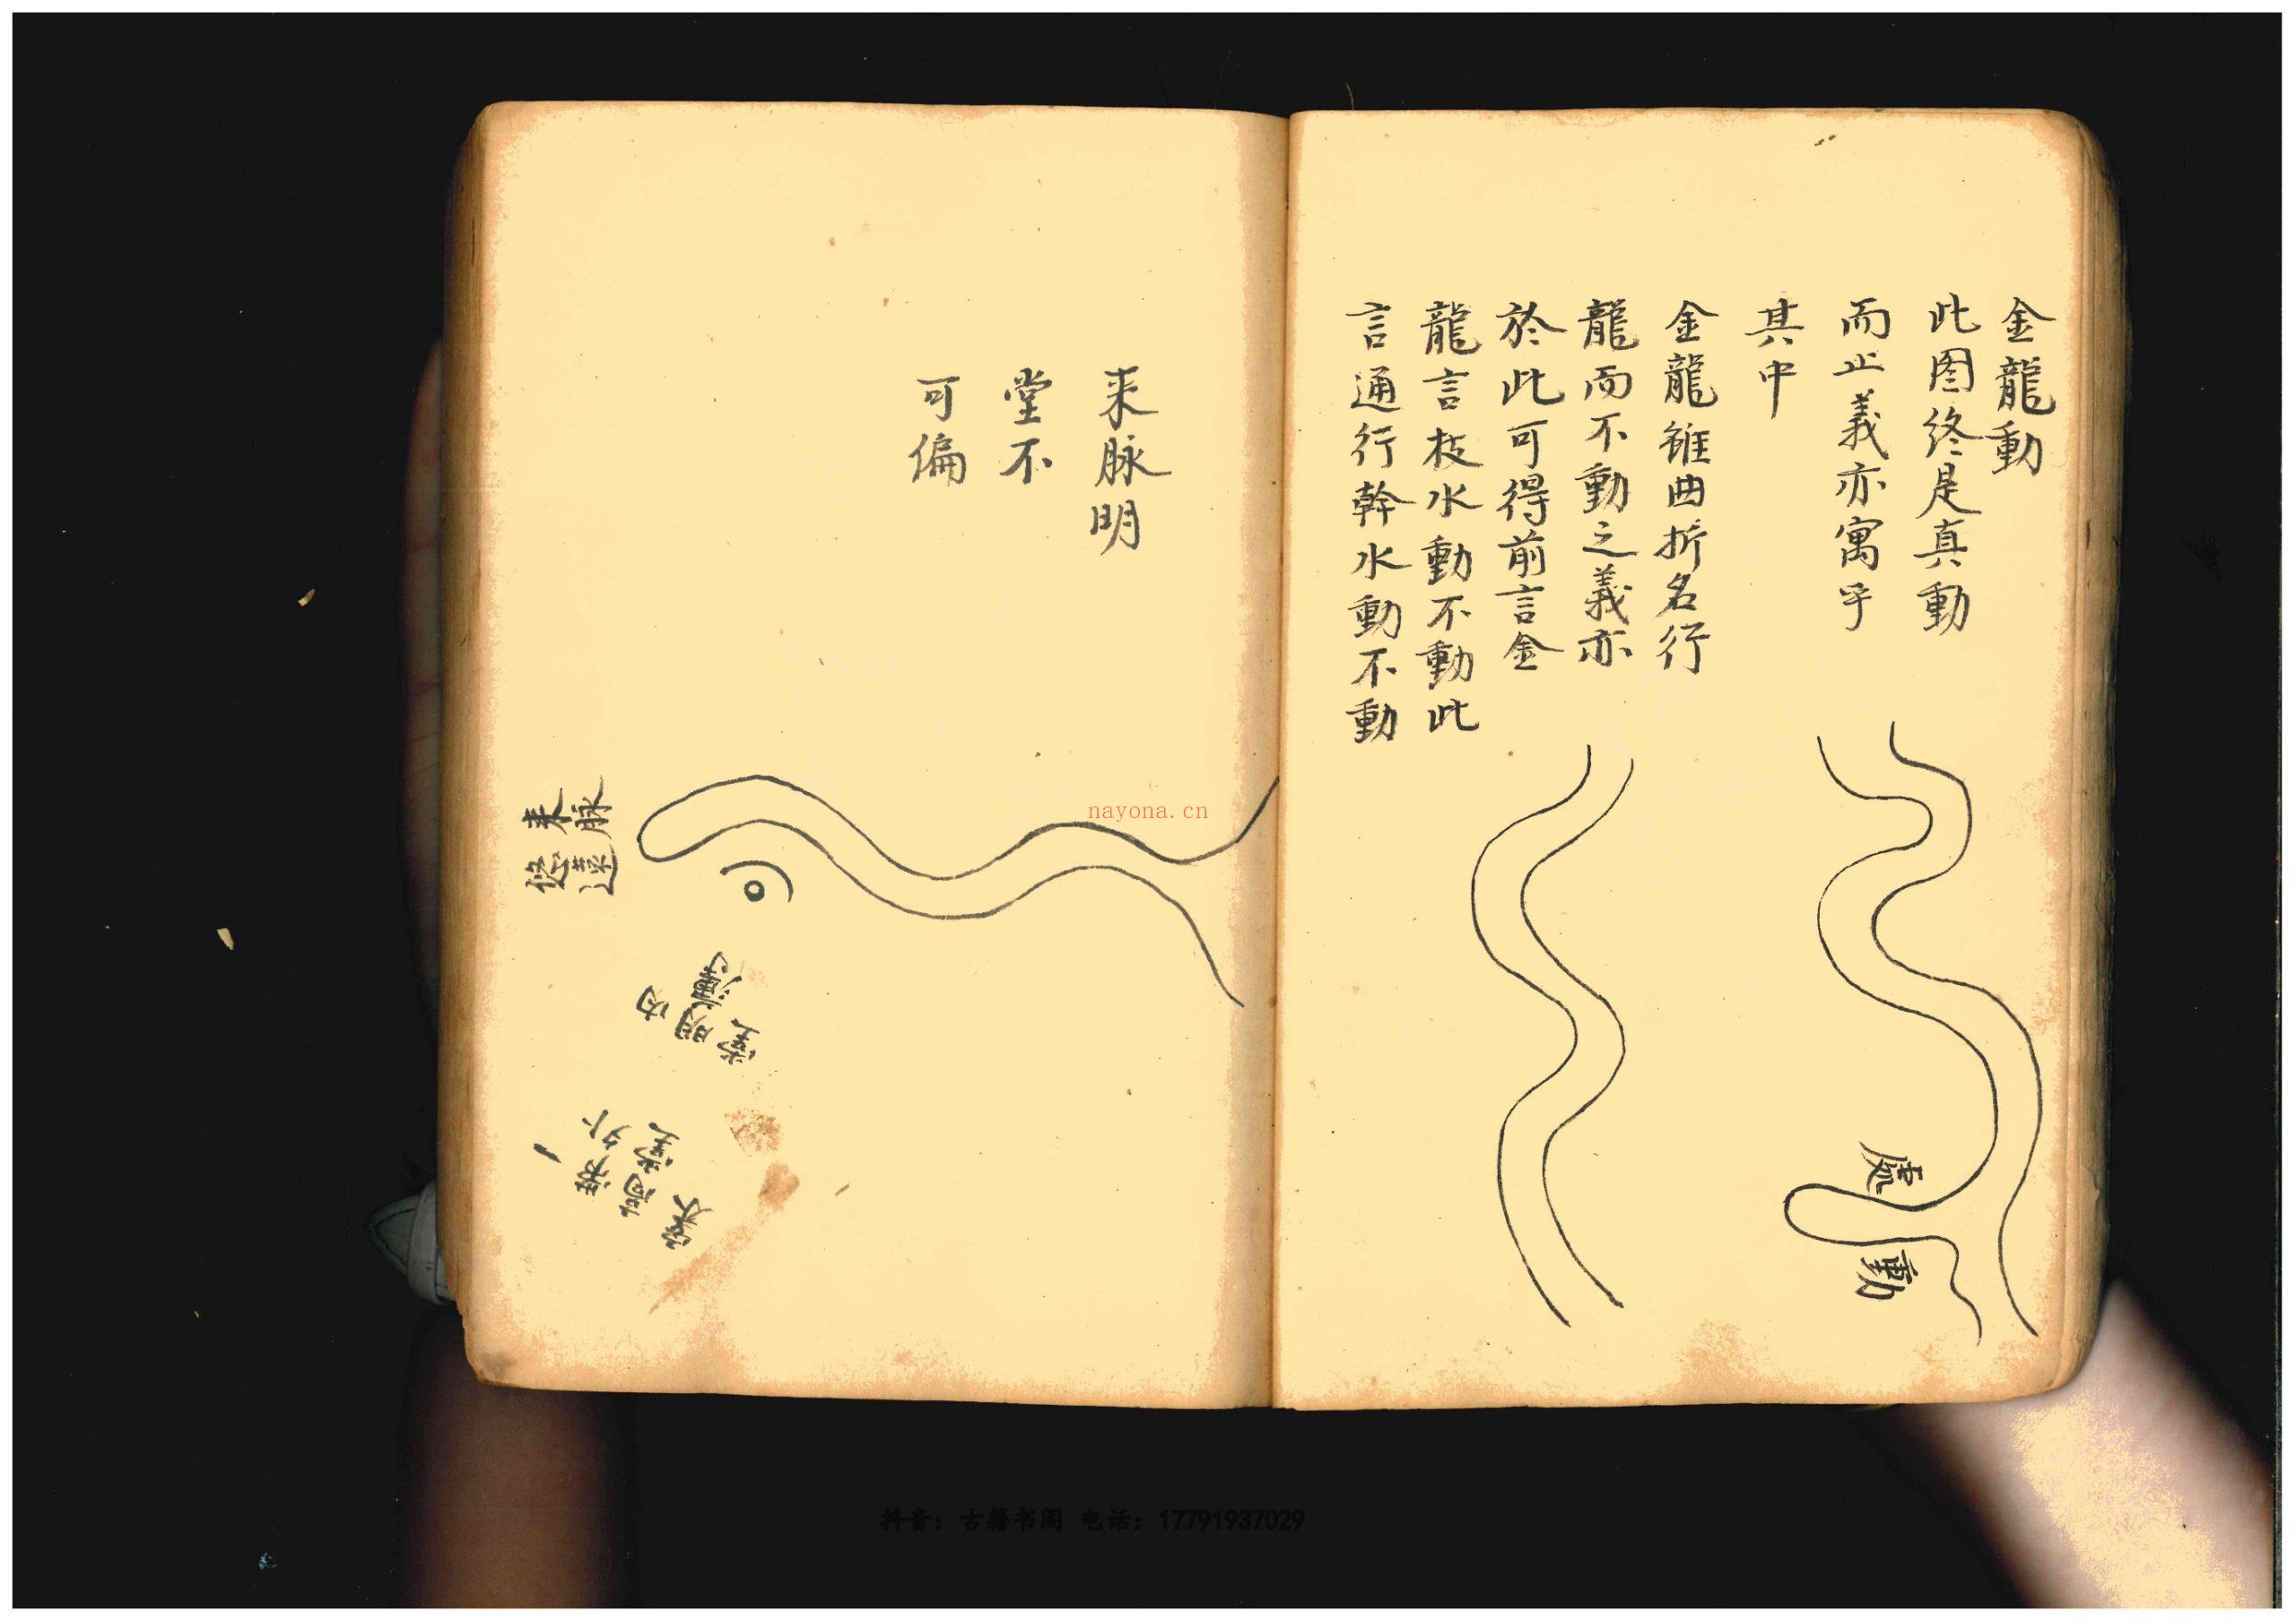 金龍動
此图终是真動
而止義亦寓乎
其中
金龍雖曲折名行
龍而不動之義亦
於此可得前言金
龍言枝水動不動此
言通行幹水動不動
動
處
来脉明
堂不
可偏
来脉
悠遠
内
明
堂
外
堂
nayona.cn
抖音：古籍书阁 电话：17791937029